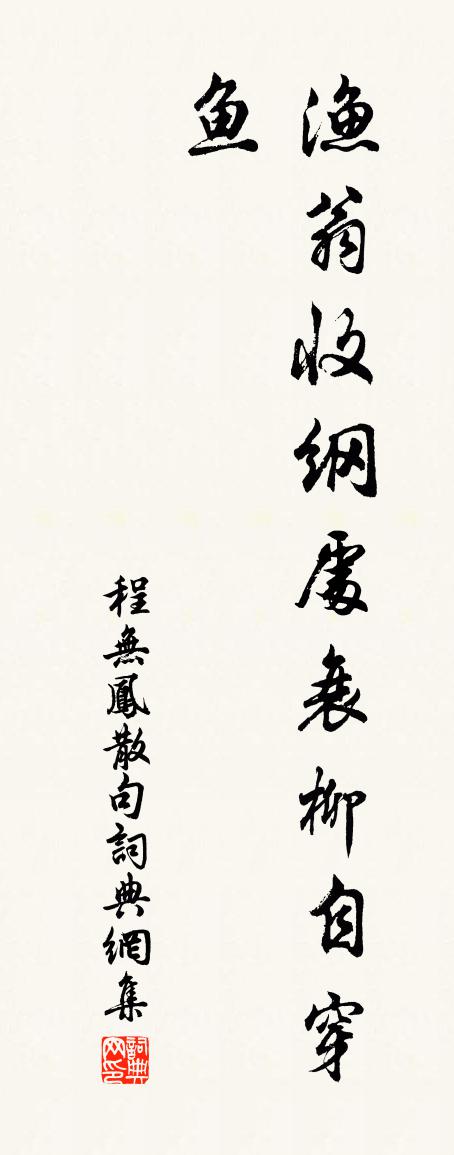 渔翁收纲處衰柳自穿
鱼
程無鳳散句詞典網集
詞典网印